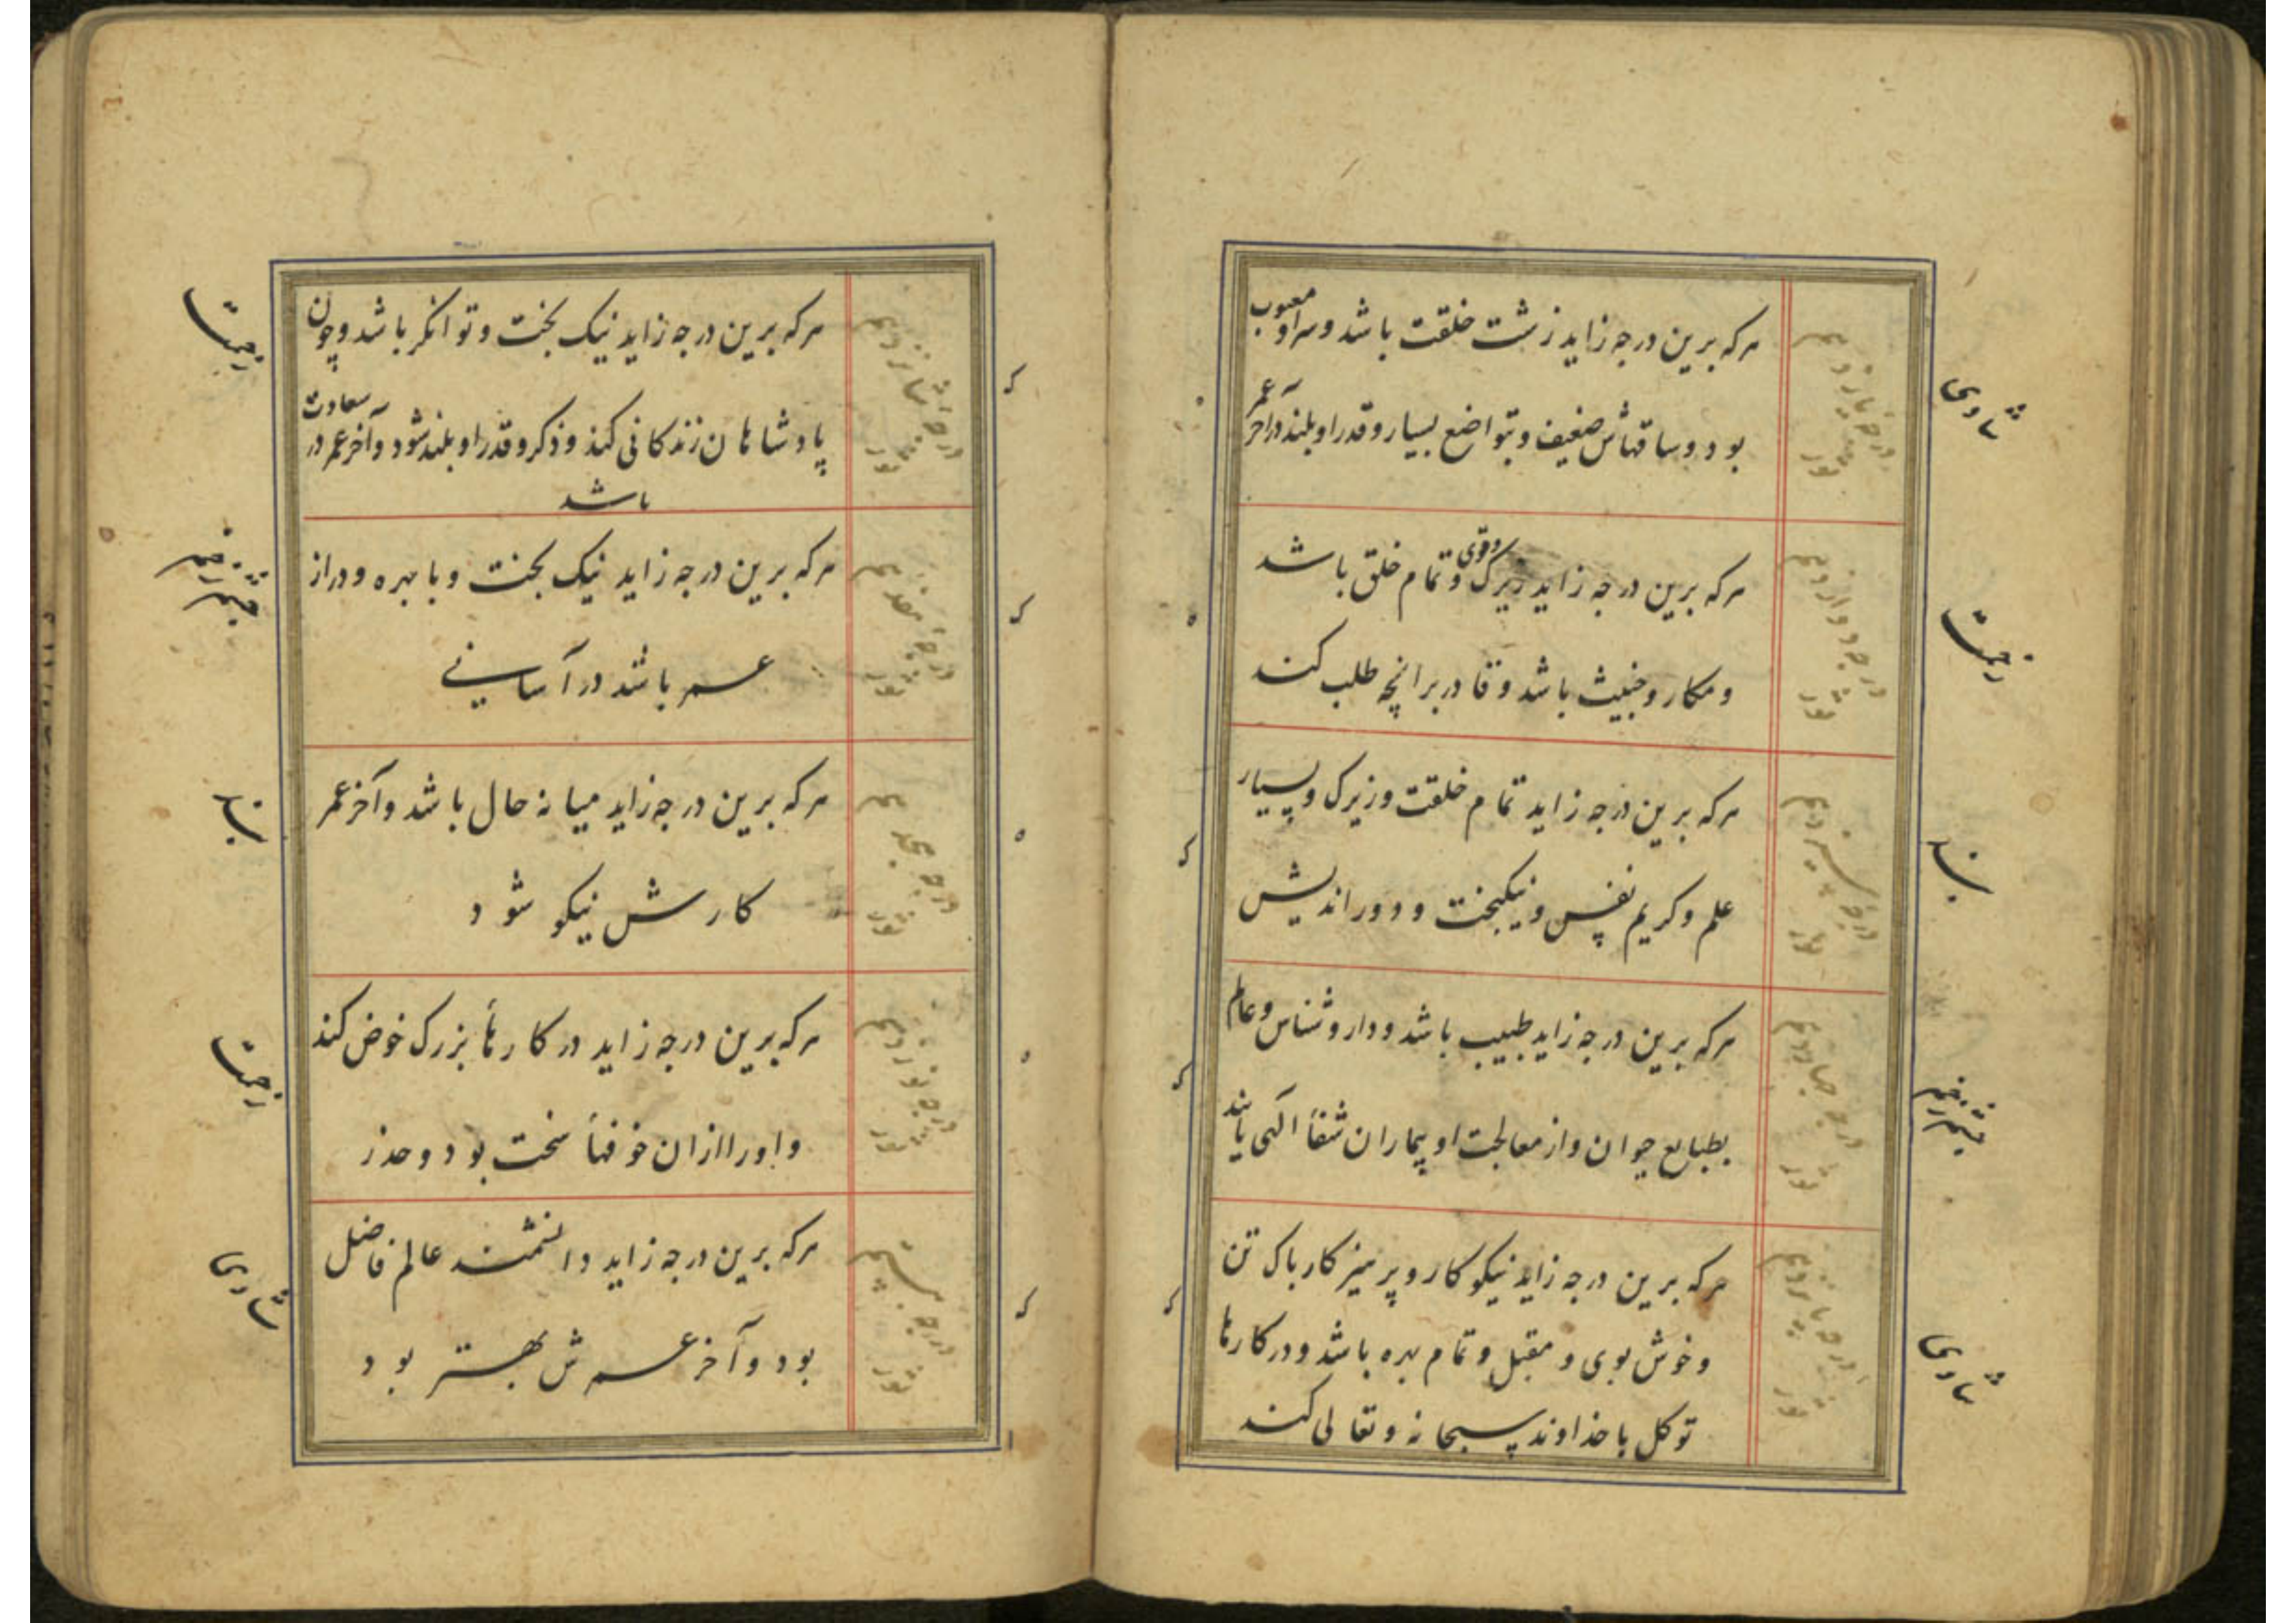 هرکه برین درجه زاید زشت خلقت باشد و سر او معیوب
بود و ساقهاش ضعیف و بتواضع بسیار و قدر او بلند در آخر عمر
درجه یازدهم ثور
شادی
هرکه برین درجه زاید زیرک و قوی و تمام خلق باشد
و مکار و خبیث باشد و قادر بر انچه طلب کند
درجه دوازدهم ثور
هرکه برین درجه زاید تمام خلقت و زیرک و بسیار
علم و کریم نفس و نیکبخت و دور اندیش
درجه سیزدهم ثور
هرکه برین درجه زاید طبیب باشد و دارو شناس و عالم
بطبایع حیوان و از معالجت او بیماران شفا الهی یابند
درجه چهاردهم ثور
هرکه برین درجه زاید نیکو کار و پرهیزکار پاک تن
و خوش بوی و مقبل و تمام بهره باشد و در کارها
توکل با خداوند سبحانه و تعالی کند
درجه پانزدهم ثور
هرکه برین درجه زاید نیک بخت و توانکر باشد و چون
پادشاهان زندکانی کند و ذکر و قدر او بلند شود و آخر عمر در سعادت
باشد
درجه شانزدهم ثور
هرکه برین درجه زاید نیک بخت و با بهره و دراز
عمر باشد در آسانی
درجه هفدهم ثور
هرکه برین درجه زاید میانه حال باشد و آخر عمر
کارش نیکو شود
درجه هجدهم ثور
هرکه برین درجه زاید در کارهاء بزرک خوض کند
و او را ازان خوفهاء سخت بود و حذر
درجه نوزدهم ثور
هرکه برین درجه زاید دانشمند عالم فاضل
بود و آخر عمرش بهتر بود
درجه بیستم ثور